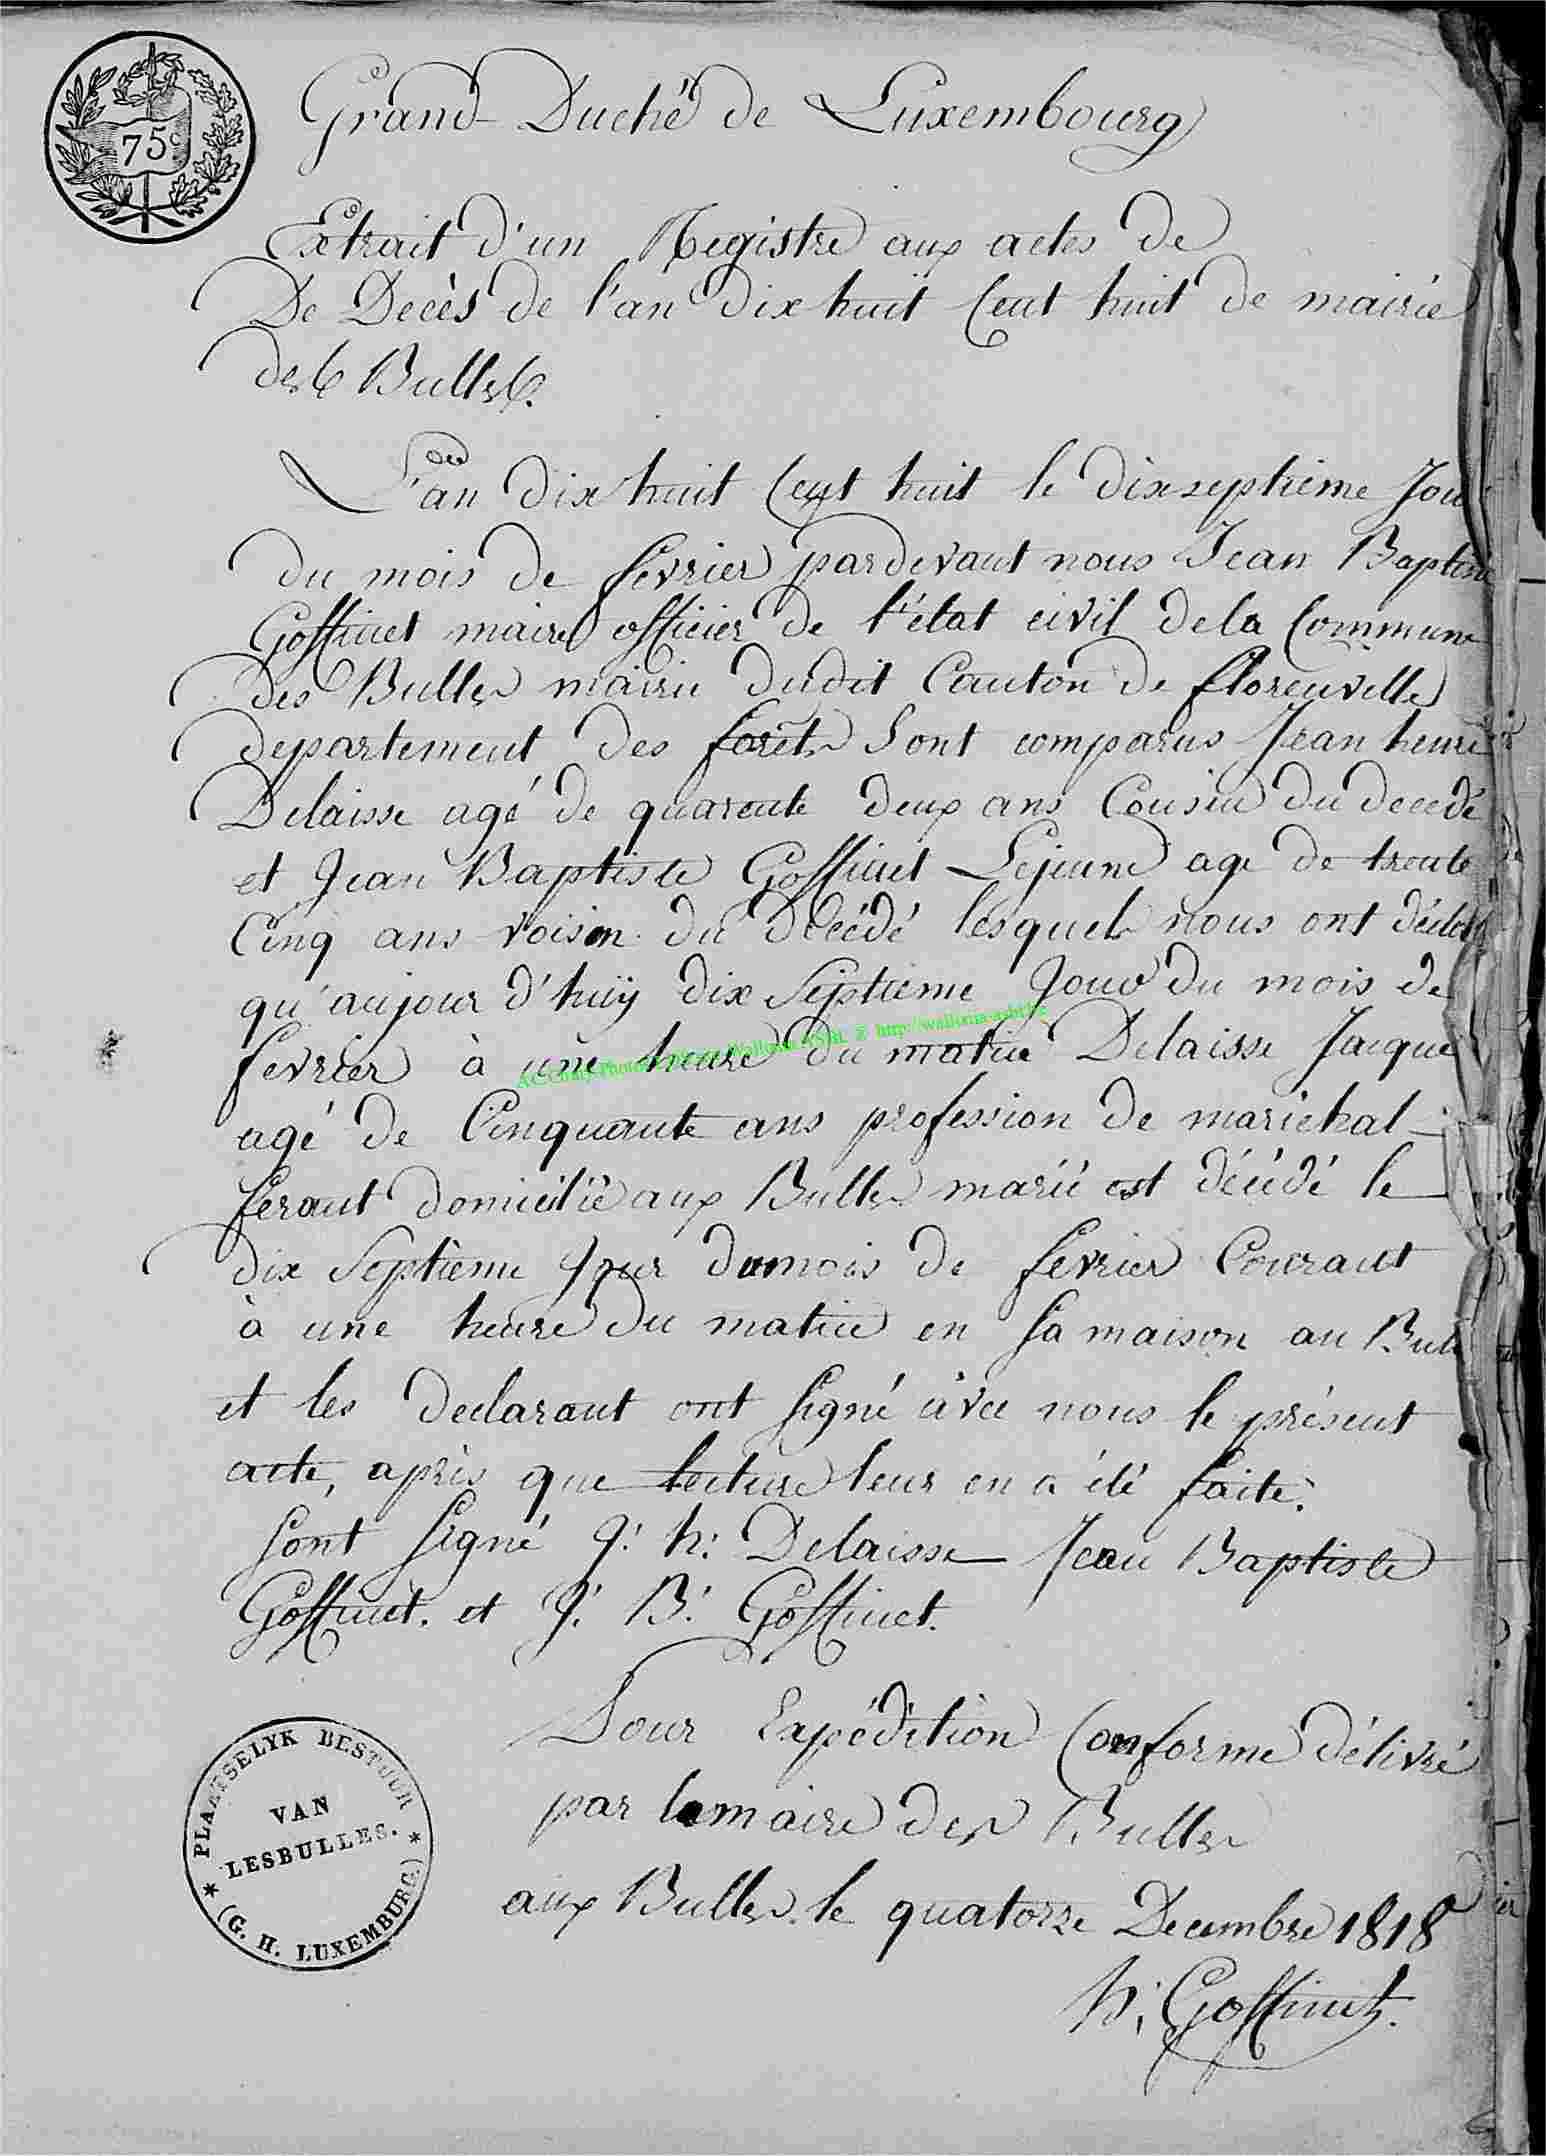 75c
Grand Duché de Luxembourg
Extrait d'un Registre aux actes de
De Decès de l'an dix huit Cent huit de mairie
des Bulles.
L'an dix huit Cent huit le dix septieme Jour
du mois de fevrier pardevant nous Jean Baptiste
Goffinet maire officier de l'état civil dela Commune
des Bulles mairie dudit Canton de florenville
departement des forêts Sont comparus Jean henri
Delaisse agé de quarente deux ans Cousin du decedé
et Jean Baptiste Goffinet Lejeune age de trente
Cinq ans voisin du décédé lesquels nous ont déclaré
qu'aujour d'huÿ dix Septieme Jour du mois de
fevrier à une heure du matin Delaisse Jacque
agé de Cinquante ans profession de marichal
feraut domicilié aux Bulles marié est décédé le
dix Septieme Jour du mois de fevrier Courant
à une heure du matin en sa maison au Bulles
et les declarant ont signé avec nous le présent
acte, après que lecture leur en a été faite.
sont signé J: h: Delaisse Jean Baptiste
Goffinet. et J: B: Goffinet.
Pour Expédition Conforme délivré
par lemaire des Bulles
aux Bulles le quatorze Decembre 1818
h: Goffinet.
PLAETSELYK BESTUUR
VAN
LESBULLES.
(G. H. LUXEMBURG.)